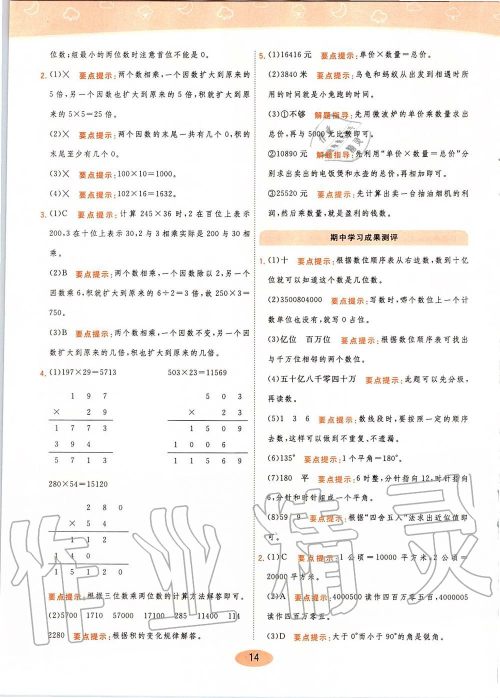 位数;组最小的两位数时注意首位不能是0。
2. (1)× 要点提示:两个数相乘,一个因数扩大到原来的
5倍,另一个因数也扩大到原来的5倍,积就扩大到原
来的5×5=25倍。
(2)× 要点提示:两个因数的末尾一共有几个0,积的
末尾至少有几个0。
(3)× 要点提示:100×10=1000。
(4)× 要点提示:102×16=1632。
3. (1)C 要点提示:计算245×36时,2在百位上表示
200,3在十位上表示30,2与3相乘实际是200与30相
乘。
(2)B 要点提示:两个数相乘,一个因数除以2,另一个
因数乘6,积就扩大到原来的6÷2=3倍,故250×3=
750。
(3)B 要点提示:两个数相乘,一个因数不变,另一个因
数扩大到原来的几倍,积也扩大到原来的几倍。
4. (1)197×29=5713 503×23=11569
1 9 7
× 2 9
1 7 7 3
3 9 4
5 7 1 3
5 0 3
× 2 3
1 5 0 9
1 0 0 6
1 1 5 6 9
280×54=15120
2 8 0
× 5 4
1 1 2
1 4 0
1 5 1 2 0
要点提示:根据三位数乘两位数的计算方法解答即可。
(2)5700 1710 57000 17100 285 11400 114
2280 要点提示:根据积的变化规律解答。
5. (1)16416元 要点提示:单价×数量=总价。
(2)3840米 要点提示:乌龟和蚂蚁从出发到相遇时所
用的时间就是小兔跑的时间。
(3)①不够 解题指导:先用微波炉的单价乘数量求出
总价,再与5000元比较即可。
②10890元 解题指导:先利用“单价×数量=总价”分
别求出卖出的电饭煲和水壶的总价,再相加即可。
③25520元 要点提示:先计算出卖一台抽油烟机的利
润,然后乘数量,就是盈利的钱数。
期中学习成果测评
1. (1)十 要点提示:根据数位顺序表从右边数,数到十亿
位就可以知道这个数是几位数。
(2)3500804000 要点提示:写数时,哪个数位上一个计
数单位也没有,就写0占位。
(3)亿位 百万位 要点提示:根据数位顺序表可找出
与千万位相邻的两个数位。
(4)五十亿八千零四十万 要点提示:此题可以先分级,
再读数。
(5)1 3 6 要点提示:数线段时,要按照一定的顺序
去数,这样可以做到不重复、不遗漏。
(6)135° 要点提示:1个平角=180°。
(7)180 平 要点提示:6时整,分针指向12,时针指向
6,分针和时针组成一个平角。
(8)59 9 要点提示:根据“四舍五入”法求出近似值即
可。
2. (1)C 要点提示:1公顷=10000平方米,2公顷=
20000平方米。
(2)A 要点提示:4000500读作四百万零五百,4000005
读作四百万零五。
(3)D 要点提示:大于0°而小于90°的角是锐角。
14
作业精灵